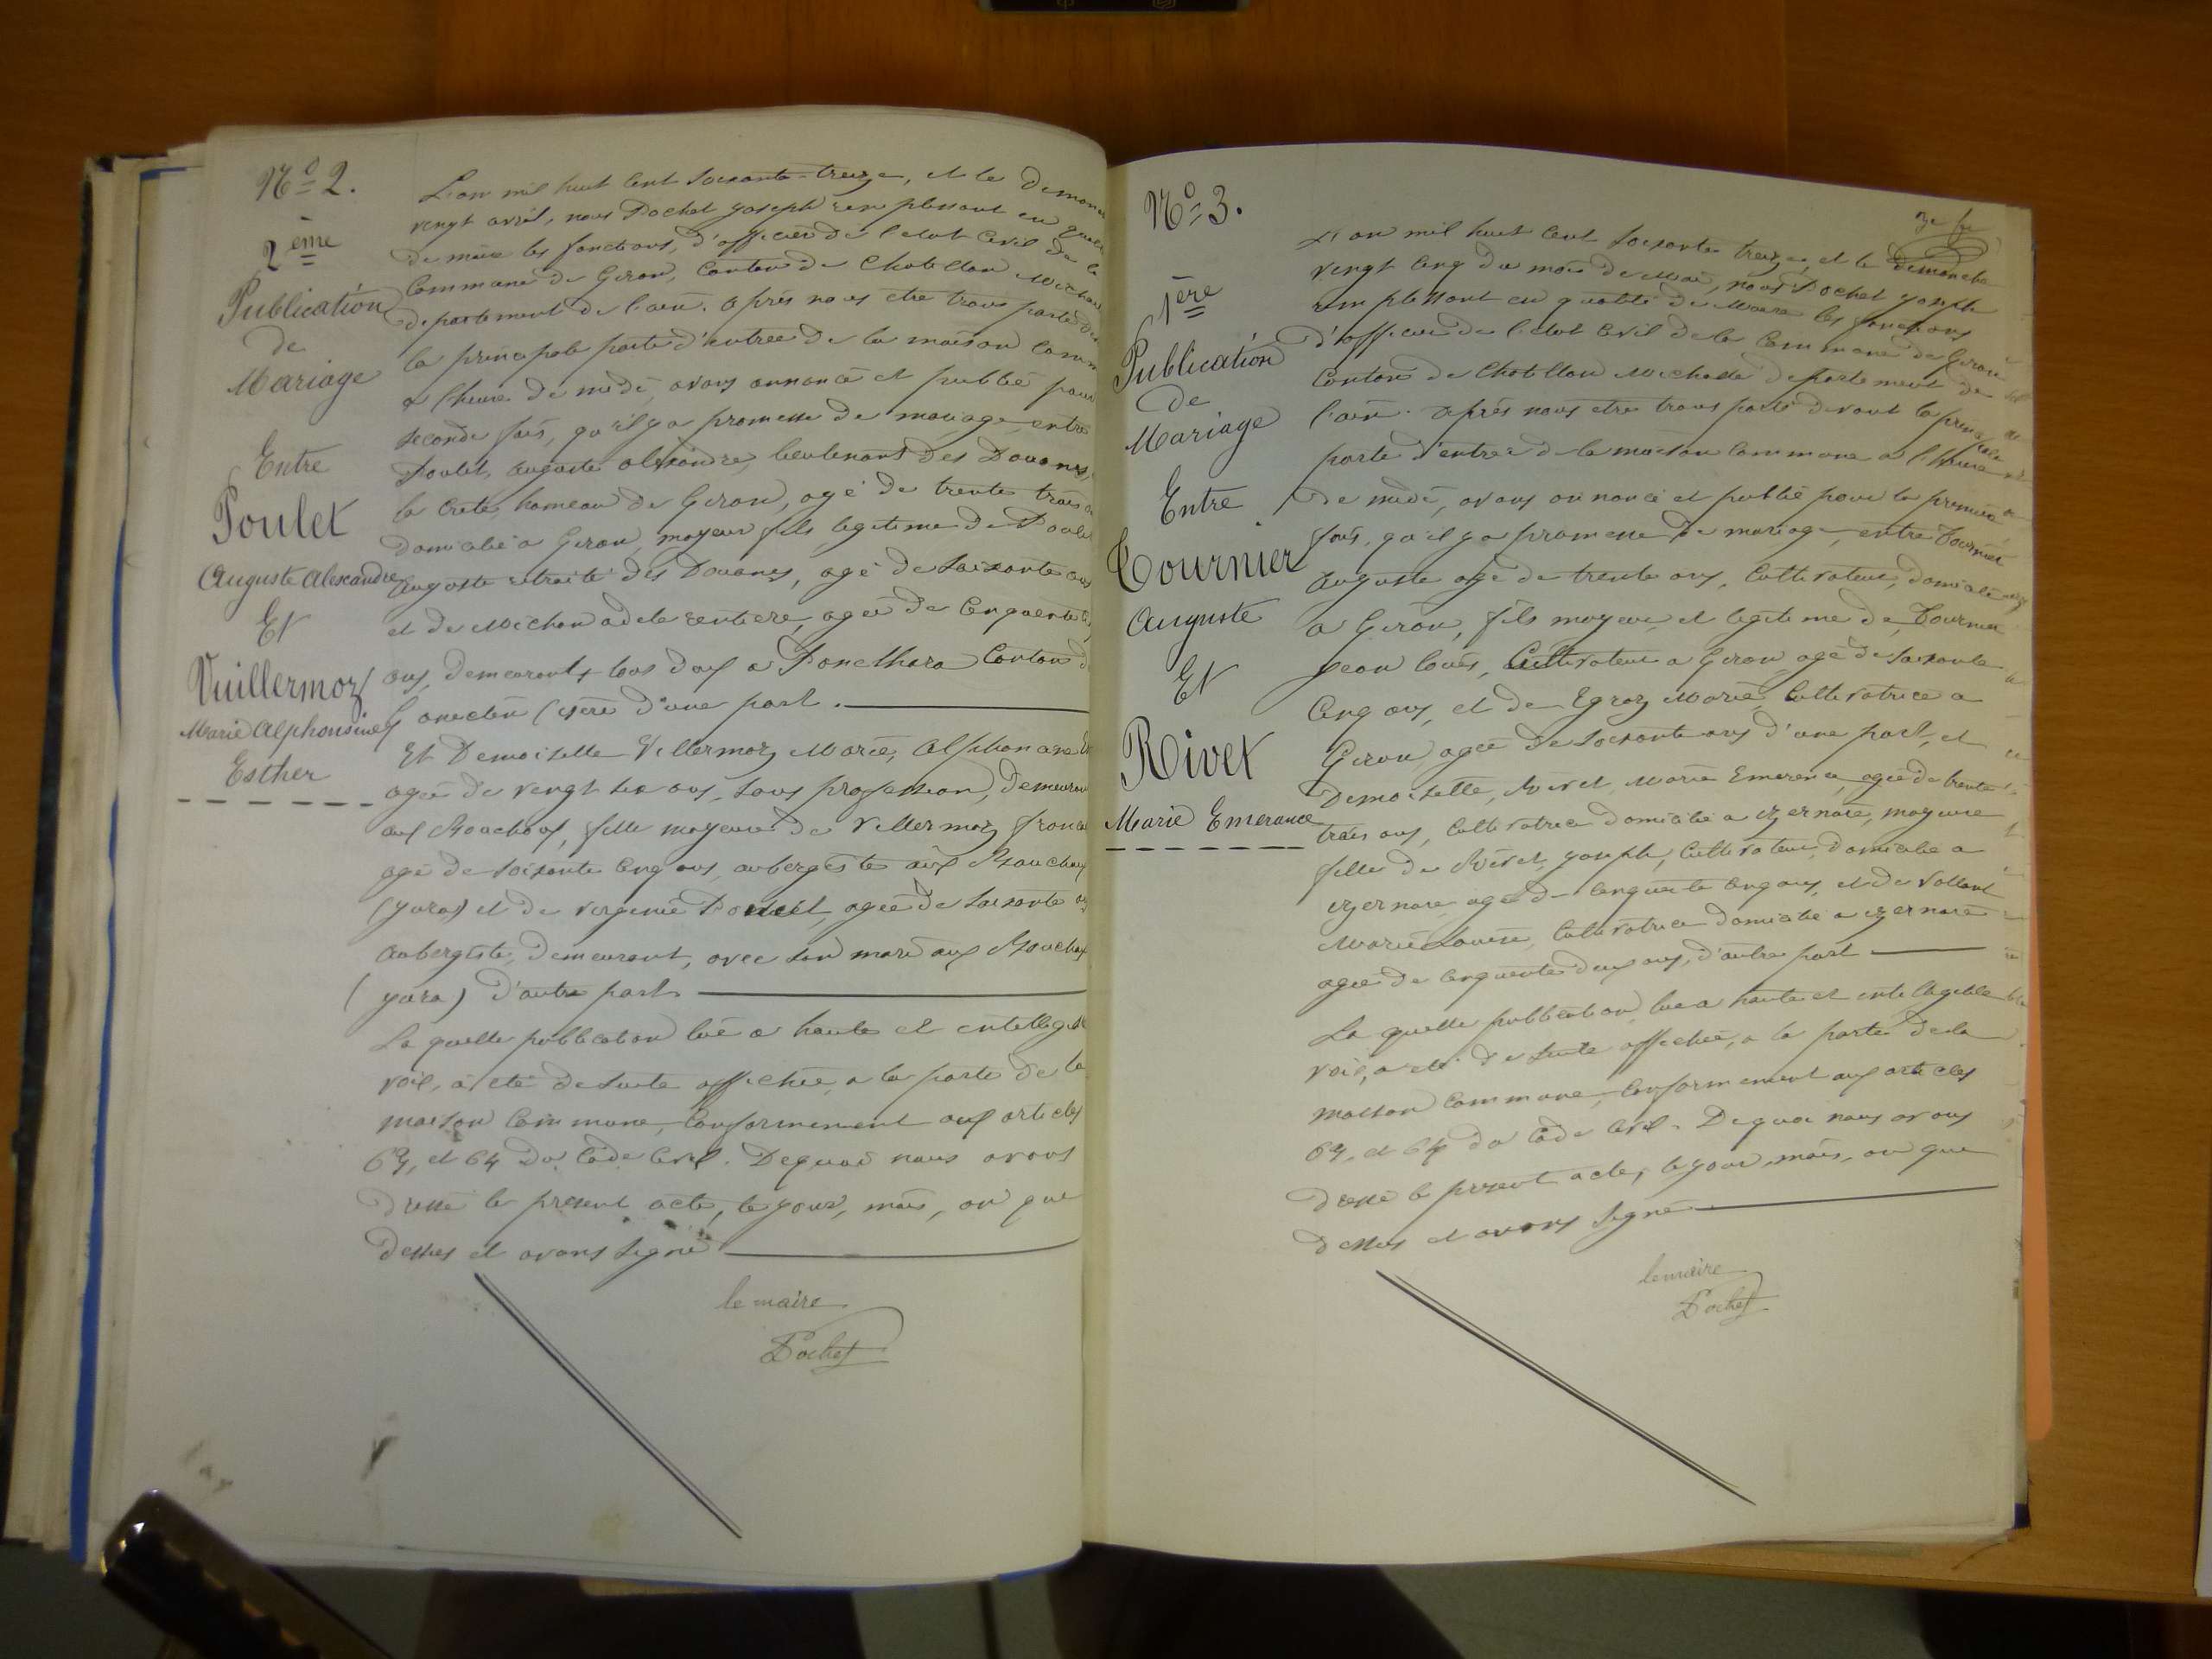 No 2.
2ème
Publication
de
Mariage
Entre
Poulet
Auguste Alexandre
Et
Vuillermoz
Marie Alphonsine
Esther
L'an mil huit cent soixante-treize, et le dimanche
vingt avril, nous Pochet joseph remplissant en
de maire les fonctions, d'officier de l'etat civil de la
commune de Giron, canton de Chatillon Michaille
departement de l'ain. après nous etre transporté
la principale porte d'entrée de la maison
a l'heure de midi, avons annoncé et publié pour
seconde fois, qu'il y a promesse de mariage entre
Poulet, auguste alexandre, lieutenant des Douanes,
la crete, hameau de Giron, agé de trente trois
domicilié a Giron, mageur fils legitime de Poulet
auguste retraité des Douanes, agé de soixante ans
et de Michon adele rentiere, agée de cinquante
ans, demeurant tous deux a Pontcharra canton de
Goncelin (isère d'une part.
Et Demoiselle Villermoz Marie, Alphonsine
agée de vingt six ans, sans profession, demeurant
aux Bouchoux, fille mageure de Villermoz
agé de soixante cinq ans, aubergiste aux Bouchoux
(jura) et de virgenie agée de soixante ans
aubergiste, demeurant, avec son mari aux Bouchoux
(jura) d'autre part.
La quelle publication lue a haute et
voix, à été de suite affichée, a la porte de la
maison commune, conformement aux articles
63, et 64 du code civil. De quoi nous avons
dressé le present acte, le jour, mois, an que
dessus et avons signé
le maire
Pochet
No 3.
1ère
Publication
de
Mariage
Entre
Tournier
Auguste
Et
Rivet
Marie Emerance
L'an mil huit cent soixante treize, et le dimanche
vingt cinq du mois de Mai, nous Pochet joseph
remplissant en qualité de Maire les fonctions
d'officier de l'etat civil de la commune de Giron
canton de Chatillon Michaille departement de
l'ain. après nous etre transporté devant la principale
porte d'entrée de la maison commune a l'heure
de midi, avons annoncé et publié pour la premiere
fois, qu'il y a promesse de mariage, entre Tournier
auguste agé de trente ans, cultivateur, domicilié
a Giron, fils mageur, et legitime de Tournier
jean louis, cultivateur a Giron agé de soixante
cinq ans, et de Egraz Marie, cultivatrice a
Giron agée de soixante ans d'une part, et
Demoiselle, Rivet Marie Emerance, agée de trente
trois ans, cultivatrice domicilié a izernore, mageure
fille de Rivet joseph, cultivateur, domicilié a
izernore agé de cinquante cinq ans, et de
Marie Louise, cultivatrice domicilié a izernore
agée de cinquante deux ans, d'autre part
La quelle publication lue a haute et intelligible
voix, a été de suite affichée, a la porte de la
maison commune, conformement aux articles
63, et 64 du code civil. De quoi nous avons
dressé le present acte, le jour, mois, an que
dessus et avons signé
le maire
Pochet